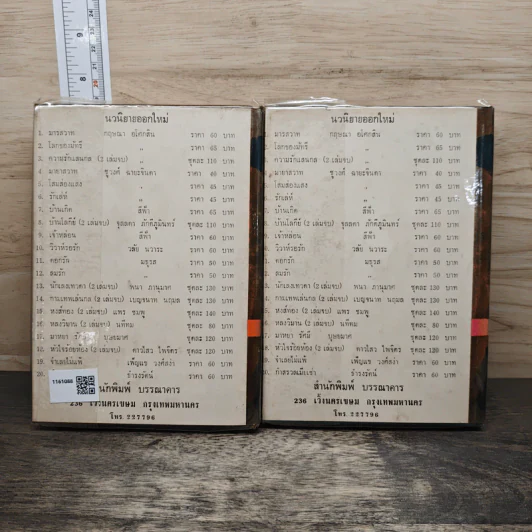 นวนิยายออกใหม่
1. มารสวาท กฤษณา อโศกสิน ราคา 60 บาท
2. โลกของมัทรี " ราคา 65 บาท
3. ความรักแสนกล (2 เล่มจบ) " ชุดละ 110 บาท
4. มายาสวาท ชูวงศ์ ฉายะจินดา ราคา 40 บาท
5. โสมส่องแสง " ราคา 45 บาท
6. รักเล่ห์ " ราคา 45 บาท
7. บ้านเกิด สีฟ้า ราคา 65 บาท
8. บ้านโลกีย์ (2 เล่มจบ) จุลลดา ภักดีภูมินทร์ ชุดละ 110 บาท
9. เจ้าหล่อน สีฟ้า ราคา 60 บาท
10. วิวาห์วายรัก วลัย นวาระ ราคา 60 บาท
11. ตอกรัก มธุรส ราคา 50 บาท
12. ลมรัก " ราคา 50 บาท
13. (2 เล่มจบ) โพนา ภานุมาศ ชุดละ 130 บาท
14. (2 เล่มจบ) เบญจนาท นฤมล ชุดละ 130 บาท
15. หงส์ทอง (2 เล่มจบ) แพร ชมพู ชุดละ 140 บาท
16. หลงวิมาน (2 เล่มจบ) นทีทม ชุดละ 80 บาท
17. มาหยา รัศมี บุษยมาศ ชุดละ 120 บาท
18. หัวใจร้อยห้อง (2 เล่มจบ) ดาวไสว ไพจิตร ชุดละ 120 บาท
19. จำเลยไม่แพ้ เพ็ญแข วงศ์สง่า ราคา 60 บาท
20. ธำรงรัตน์ ราคา 60 บาท
1161086
นักพิมพ์ บรรณาคาร
236 เวิ้งนครเขษม กรุงเทพมหานคร
โทร. 227796
นวนิยายออกใหม่
มารสวาท กฤษณา อโศกสิน ราคา 60 บาท
โลกของมัทรี " ราคา 65 บาท
ความรักแสนกล (2 เล่มจบ) " ชุดละ 110 บาท
มายาสวาท ชูวงศ์ ฉายะจินดา ราคา 40 บาท
โสมส่องแสง " ราคา 45 บาท
รักเล่ห์ " ราคา 45 บาท
บ้านเกิด สีฟ้า ราคา 65 บาท
บ้านโลกีย์ (2 เล่มจบ) จุลลดา ภักดีภูมินทร์ ชุดละ 110 บาท
เจ้าหล่อน สีฟ้า ราคา 60 บาท
วิวาห์วายรัก วลัย นวาระ ราคา 60 บาท
ตอกรัก มธุรส ราคา 50 บาท
ลมรัก " ราคา 50 บาท
(2 เล่มจบ) โพนา ภานุมาศ ชุดละ 130 บาท
(2 เล่มจบ) เบญจนาท นฤมล ชุดละ 130 บาท
หงส์ทอง (2 เล่มจบ) แพร ชมพู ชุดละ 140 บาท
หลงวิมาน (2 เล่มจบ) นทีทม ชุดละ 80 บาท
มาหยา รัศมี บุษยมาศ ชุดละ 120 บาท
หัวใจร้อยห้อง (2 เล่มจบ) ดาวไสว ไพจิตร ชุดละ 120 บาท
จำเลยไม่แพ้ เพ็ญแข วงศ์สง่า ราคา 60 บาท
ธำรงรัตน์ ราคา 60 บาท
สำนักพิมพ์ บรรณาคาร
236 เวิ้งนครเขษม กรุงเทพมหานคร
โทร. 227796